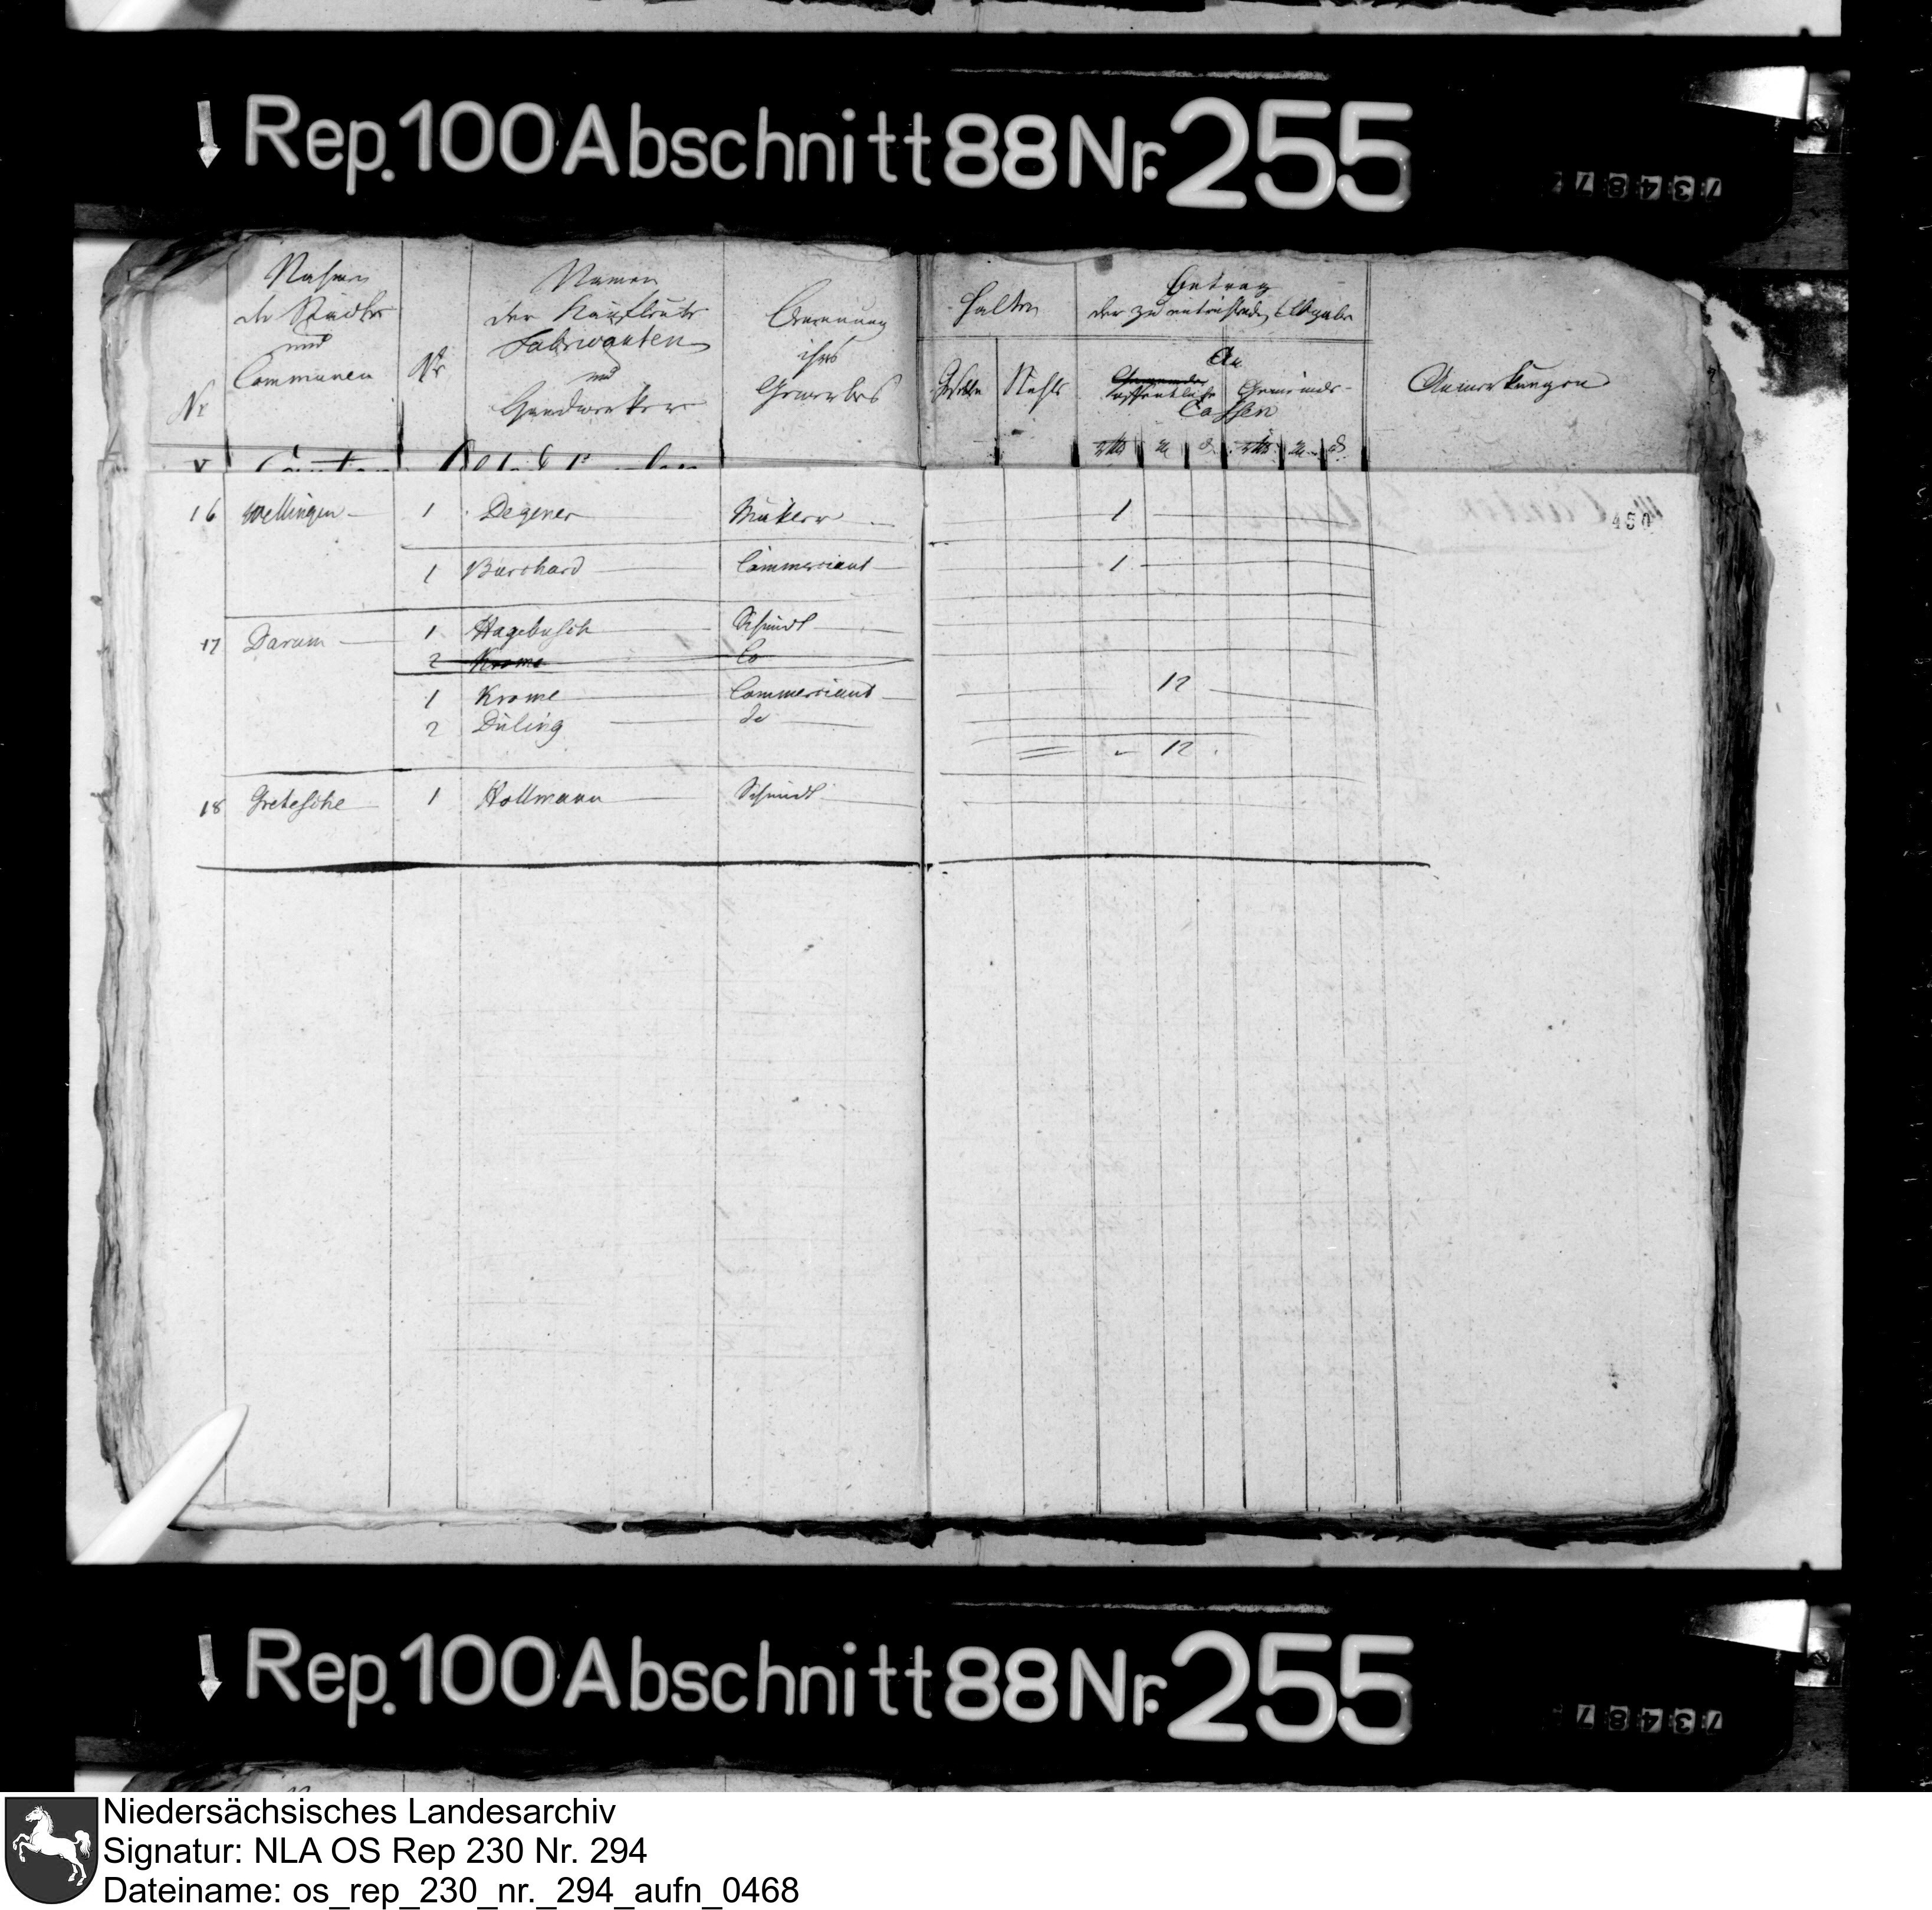 Rep. 100 Abschnitt 88 Nr. 255
73487
Nr
Nahmen
der Städte
und
Communen
Nr
Namen
der Kaufleute
Fabricanten
und
Handwerker
Benennung
ihres
Gewerbes
Halten
Gesellen
Stühle
Betrag
der zu entrichtenden Abgabe
An
öffentliche
Gemeinde-
Cassen
Anmerkungen
V Canton
450
16 Wellingen 1 Degener 1
1 Burchard Commerciant 1
17 Darum 1 Hagebusch Schmidt
2 Krome
1 Krome Commerciant 12
2 Düling do
12
18 Gretesche 1 Hollmann Schmidt
Rep. 100 Abschnitt 88 Nr. 255
73487
Niedersächsisches Landesarchiv
Signatur: NLA OS Rep 230 Nr. 294
Dateiname: os_rep_230_nr._294_aufn_0468